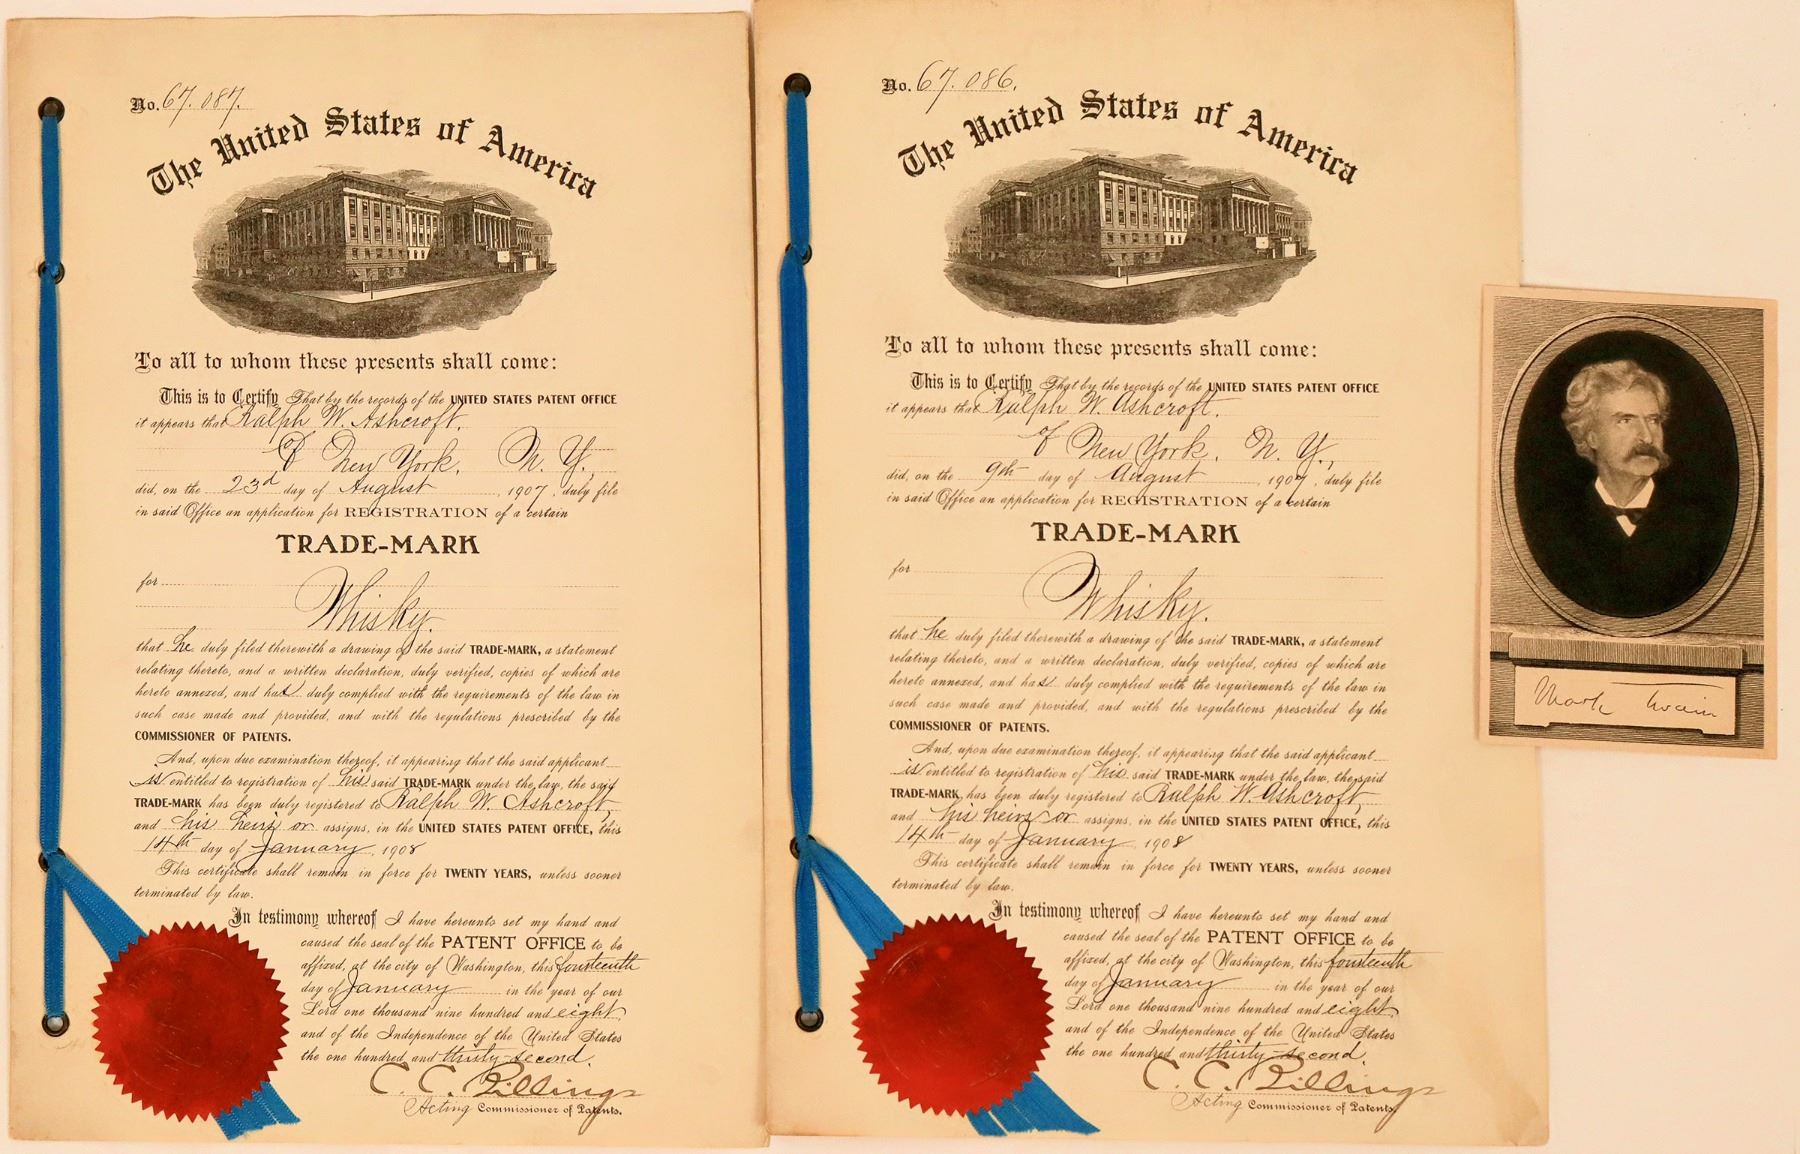 No. 67.087.
The United States of America
To all to whom these presents shall come:
This is to Certify That by the records of the UNITED STATES PATENT OFFICE
it appears that Ralph W. Ashcroft,
of New York, N. Y.,
did, on the 23d day of August, 1907, duly file
in said Office an application for REGISTRATION of a certain
TRADE-MARK
for
Whisky.
that he duly filed therewith a drawing of the said TRADE-MARK, a statement
relating thereto, and a written declaration, duly verified, copies of which are
hereto annexed, and has duly complied with the requirements of the law in
such case made and provided, and with the regulations prescribed by the
COMMISSIONER OF PATENTS.
And, upon due examination thereof, it appearing that the said applicant
is entitled to registration of his said TRADE-MARK under the law, the said
TRADE-MARK has been duly registered to Ralph W. Ashcroft,
and his heirs or assigns, in the UNITED STATES PATENT OFFICE, this
14th day of January, 1908
This certificate shall remain in force for TWENTY YEARS, unless sooner
terminated by law.
In testimony whereof I have hereunto set my hand and
caused the seal of the PATENT OFFICE to be
affixed, at the city of Washington, this fourteenth
day of January in the year of our
Lord one thousand nine hundred and eight,
and of the Independence of the United States
the one hundred and thirty-second.
C. C. Billings
Acting Commissioner of Patents.
No. 67.086.
The United States of America
To all to whom these presents shall come:
This is to Certify That by the records of the UNITED STATES PATENT OFFICE
it appears that Ralph W. Ashcroft.
of New York, N. Y.,
did, on the 9th day of August, 1907, duly file
in said Office an application for REGISTRATION of a certain
TRADE-MARK
for
Whisky.
that he duly filed therewith a drawing of the said TRADE-MARK, a statement
relating thereto, and a written declaration, duly verified, copies of which are
hereto annexed, and has duly complied with the requirements of the law in
such case made and provided, and with the regulations prescribed by the
COMMISSIONER OF PATENTS.
And, upon due examination thereof, it appearing that the said applicant
is entitled to registration of his said TRADE-MARK under the law, the said
TRADE-MARK has been duly registered to Ralph W. Ashcroft,
and his heirs or assigns, in the UNITED STATES PATENT OFFICE, this
14th day of January, 1908
This certificate shall remain in force for TWENTY YEARS, unless sooner
terminated by law.
In testimony whereof I have hereunto set my hand and
caused the seal of the PATENT OFFICE to be
affixed, at the city of Washington, this fourteenth
day of January in the year of our
Lord one thousand nine hundred and eight,
and of the Independence of the United States
the one hundred and thirty-second.
C. C. Billings
Acting Commissioner of Patents.
Mark Twain